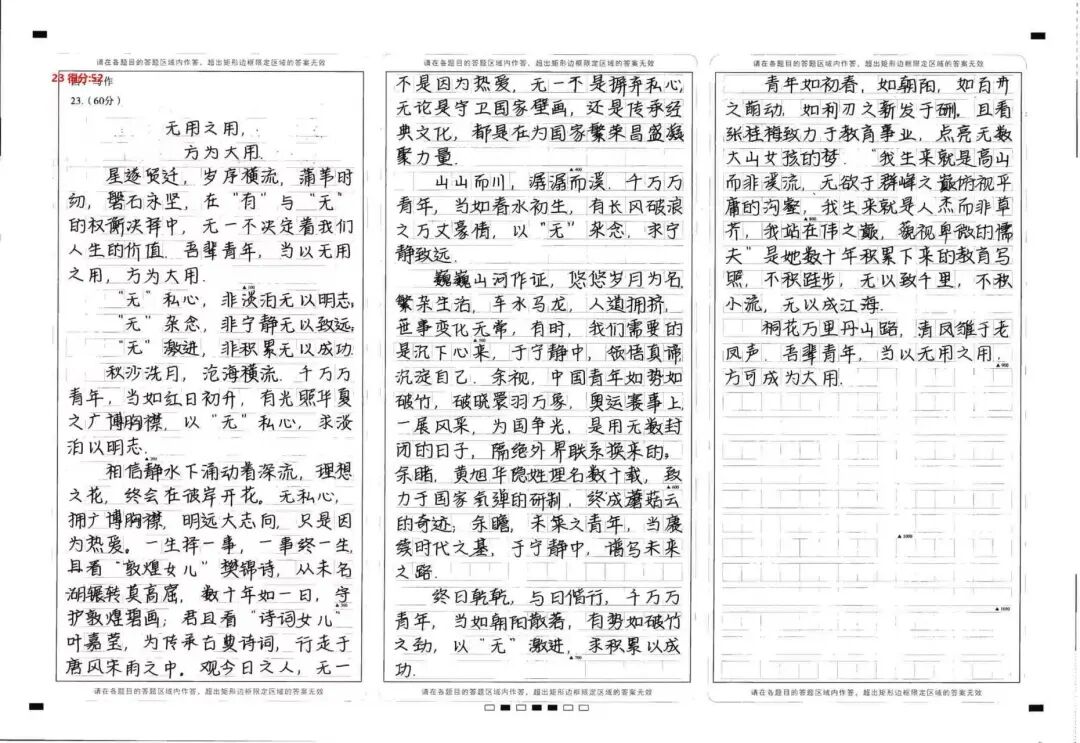 请在各题目的答题区域内作答，超出矩形边框限定区域的答案无效
23 得分:52
四、写作
23.（60分）
无用之用，
方为大用.
星逐贸迁，岁序横流，蒲苇时
刻，磐石永坚，在“有”与“无”
的权衡决择中，无一不决定着我们
人生的价值.吾辈青年，当以无用
之用，方为大用.
▲100
“无”私心，非淡泊无以明志；
“无”杂念，非宁静无以致远；
“无”激进，非积累无以成功.
秋沙洗月，沧海横流.千万万
青年，当如红日初升，有光照华夏
之广博胸襟，以“无”私心，求淡
泊以明志.
▲200
相信静水下涌动着深流，理想
之花，终会在彼岸开花。无私心，
拥广博胸襟，明远大志向，只是因
为热爱。一生择一事，一事终一生，
且看“敦煌女儿”樊锦诗，从未名
湖辗转莫高窟，数十年如一日，守
▲300
护敦煌碧画；君且看“诗词女儿”
叶嘉莹，为传承古典诗词，行走于
唐风宋雨之中.观今日之人，无一
请在各题目的答题区域内作答，超出矩形边框限定区域的答案无效
请在各题目的答题区域内作答，超出矩形边框限定区域的答案无效
不是因为热爱，无一不是摒弃私心，
无论是守卫国家壁画，还是传承经
典文化，都是在为国家繁荣昌盛凝
聚力量.
▲400
山山而川，潺潺而溪.千万万
青年，当如春水初生，有长风破浪
之万丈豪情，以“无”杂念，求宁
静致远.
巍巍山河作证，悠悠岁月为名，
繁杂生活，车水马龙，人道拥挤，
▲500
世事变化无常，有时，我们需要的
是沉下心来，于宁静中，领悟真谛
沉淀自己.余视，中国青年如势如
破竹，破晓羽万象，奥运赛事上，
一展风采，为国争光，是用无数封
闭的日子，隔绝外界联系换来的。
▲600
余瞻，黄旭华隐姓埋名数十载，致
力于国家氢弹的研制，终成蘑菇云
的奇迹；余瞻，未来之青年，当赓
续时代之基，于宁静中，谱写未来
之路.
终日乾乾，与日偕行，千万万
青年，当如朝阳散着，有势如破竹
之劲，以“无”激进，求积累以成
▲700
功.
请在各题目的答题区域内作答，超出矩形边框限定区域的答案无效
请在各题目的答题区域内作答，超出矩形边框限定区域的答案无效
青年如初春，如朝阳，如百卉
之萌动，如利刃之新发于硎。且看
张桂梅致力于教育事业，点亮无数
大山女孩的梦.“我生来就是高山
而非溪流，无欲于群峰之巅俯视平
庸的沟壑，我生来就是人杰而非草
▲800
芥，我站在伟之巅，藐视卑微的懦
夫”是她数十年积累下来的教育写
照，不积跬步，无以致千里，不积
小流，无以成江海.
桐花万里丹山路，清凤雏于老
凤声.吾辈青年，当以无用之用，
▲900
方可成为大用.
▲1000
请在各题目的答题区域内作答，超出矩形边框限定区域的答案无效